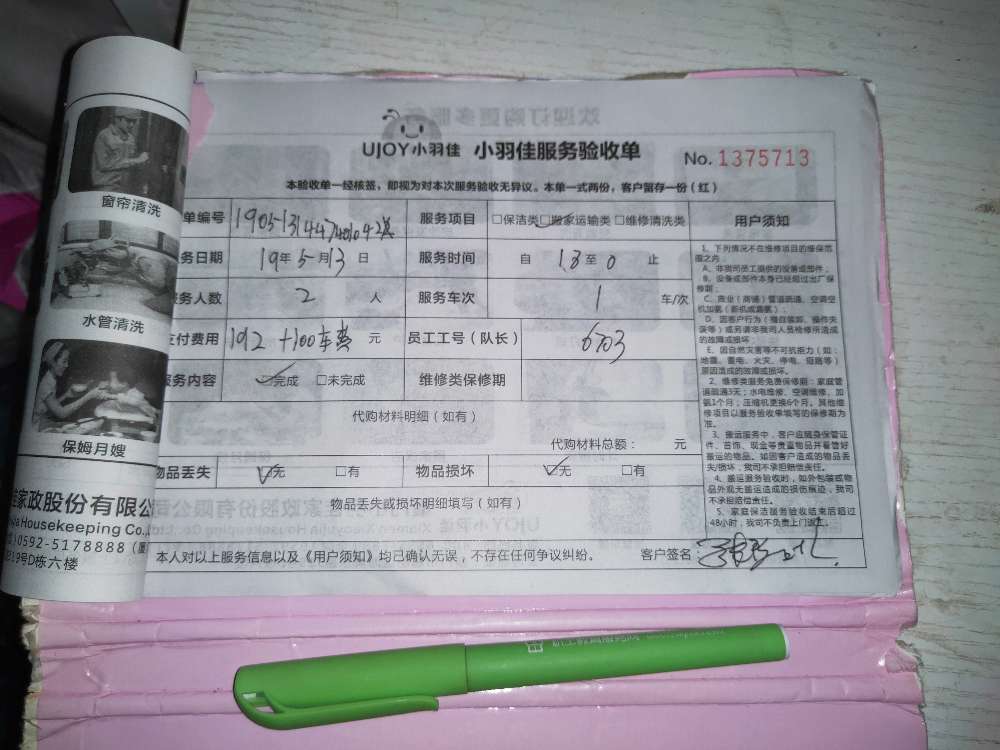 UJOY小羽佳 小羽佳服务验收单 No. 1375713
本验收单一经核签，即视为对本次服务验收无异议。本单一式两份，客户留存一份（红）
单编号 服务项目 □保洁类 □搬家运输类 □维修清洗类 用户须知
务日期 19年5月13日 服务时间 自 18 至 0 止
服务人数 2 人 服务车次 1 车/次
支付费用 192 +100车费 元 员工工号（队长） 6703
服务内容 完成 □未完成 维修类保修期
代购材料明细（如有）
代购材料总额： 元
物品丢失 无 □有 物品损坏 无 □有
物品丢失或损坏明细填写（如有）
本人对以上服务信息以及《用户须知》均已确认无误，不存在任何争议纠纷。 客户签名：
1、下列情况不在维修项目的维保范
围之内：
A、非我司员工提供的设备或部件；
B、设备或部件本身已经超过出厂保
修期；
C、商业（商铺）管道疏通、空调空
机加氨（新机或漏氨）；
D、因客户行为（擅自装卸、操作失
误等）或另请非我司人员检修所造成
的故障或损坏；
E、因自然灾害等不可抗拒力（如：
地震、雷电、火灾、停电、短路等）
原因造成的故障或损坏。
2、维修类服务免费保修期：家庭管
道疏通3天；水电维修、空调维修、加
氨1个月；压缩机更换6个月。其他维
修项目以服务验收单填写的保修期为
准。
3、搬运服务中，客户应随身保管证
件、首饰、现金等贵重物品并看管好
搬运的物品。如因客户造成的物品丢
失/损坏，我司不承担赔偿责任。
4、搬运服务验收时，如外包装或物
品外观无搬运造成的损伤痕迹，我司
不承担赔偿责任。
5、家庭保洁服务验收结束后超过
48小时，我司不负责上门返工。
窗帘清洗
水管清洗
保姆月嫂
家政股份有限公
Housekeeping Co.,
0592-5178888
19号D栋六楼